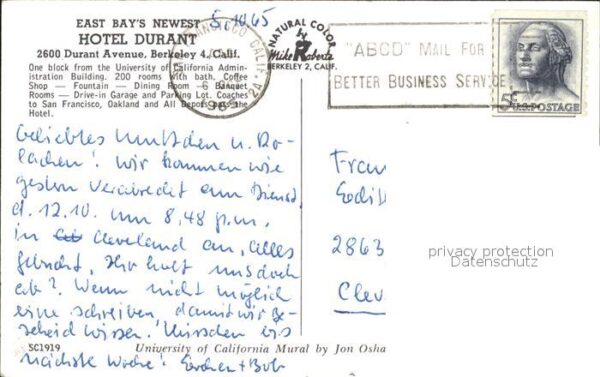 EAST BAY'S NEWEST 5.10.65
HOTEL DURANT
2600 Durant Avenue, Berkeley 4, Calif.
One block from the University of California Admin-
istration Building. 200 rooms with bath. Coffee
Shop — Fountain — Dining Room — Banquet
Rooms — Drive-in Garage and Parking Lot. Coaches
to San Francisco, Oakland and All Depots pass the
Hotel.
NATURAL COLOR
Mike Roberts
BERKELEY 2, CALIF.
CALIF.
6
"ABCD" MAIL FOR
BETTER BUSINESS SERVICE
5c U.S. POSTAGE
Geliebtes
wir kommen wie
gestern verabredet am Dienst.
d. 12.10. um 8,48 p.m.
in Cleveland an, alles
gebucht. Ihr holt uns doch
ab? Wenn nicht möglich
eine schreiben, damit wir ge-
scheid wissen. Küsschen bis
nächste Woche! + Bob
Frau
Edit
2863
Clev
privacy protection
Datenschutz
SC1919 University of California Mural by Jon Osha